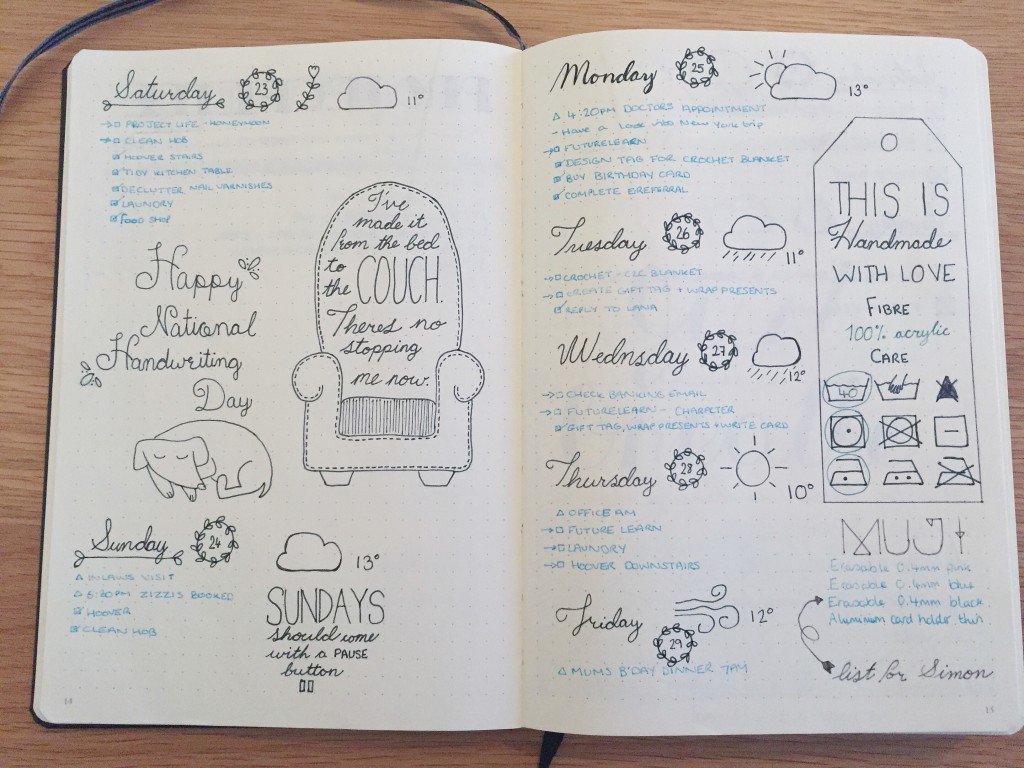 Saturday 23 11°
PROJECT LIFE - HONEYMOON
CLEAN HOB
HOOVER STAIRS
TIDY KITCHEN TABLE
DECLUTTER NAIL VARNISHES
LAUNDRY
FOOD SHOP
Happy
National
Handwriting
Day
I've
made it
from the bed
to
the COUCH.
Theres no
stopping
me now.
Sunday 24 13°
INLAWS VISIT
6:30PM ZIZZIS BOOKED
HOOVER
CLEAN HOB
SUNDAYS
should come
with a PAUSE
button
14
Monday 25 13°
4:20PM DOCTORS APPOINTMENT
- Have a look into New York trip
FUTURELEARN
DESIGN TAG FOR CROCHET BLANKET
BUY BIRTHDAY CARD
COMPLETE EREFERRAL
Tuesday 26 11°
CROCHET - CCC BLANKET
CREATE GIFT TAG + WRAP PRESENTS
REPLY TO LANA
Wednsday 27 12°
CHECK BANKING EMAIL
FUTURELEARN - CHARACTER
GIFT TAG, WRAP PRESENTS + WRITE CARD
Thursday 28 10°
OFFICE AM
FUTURE LEARN
LAUNDRY
HOOVER DOWNSTAIRS
Friday 29 12°
MUMS B'DAY DINNER 7PM
THIS IS
Handmade
WITH LOVE
FIBRE
100% acrylic
CARE
40
MUJI
Erasable 0.4mm pink
Erasable 0.4mm blue
Erasable 0.4mm black
Aluminum card holder thin.
list for Simon
15